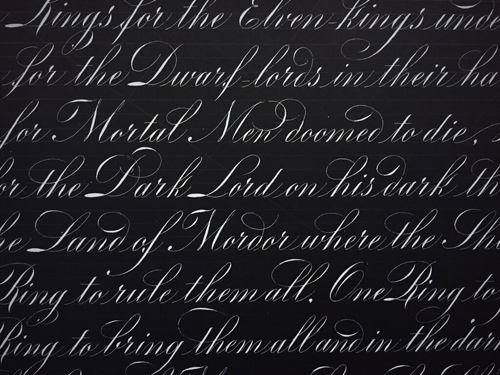 Rings for the Elven-kings und
for the Dwarf-lords in their ha
for Mortal Men doomed to die,
or the Dark Lord on his dark th
he Land of Mordor where the Sh
Ring to rule them all. One Ring to
Ring to bring them all and in the dar